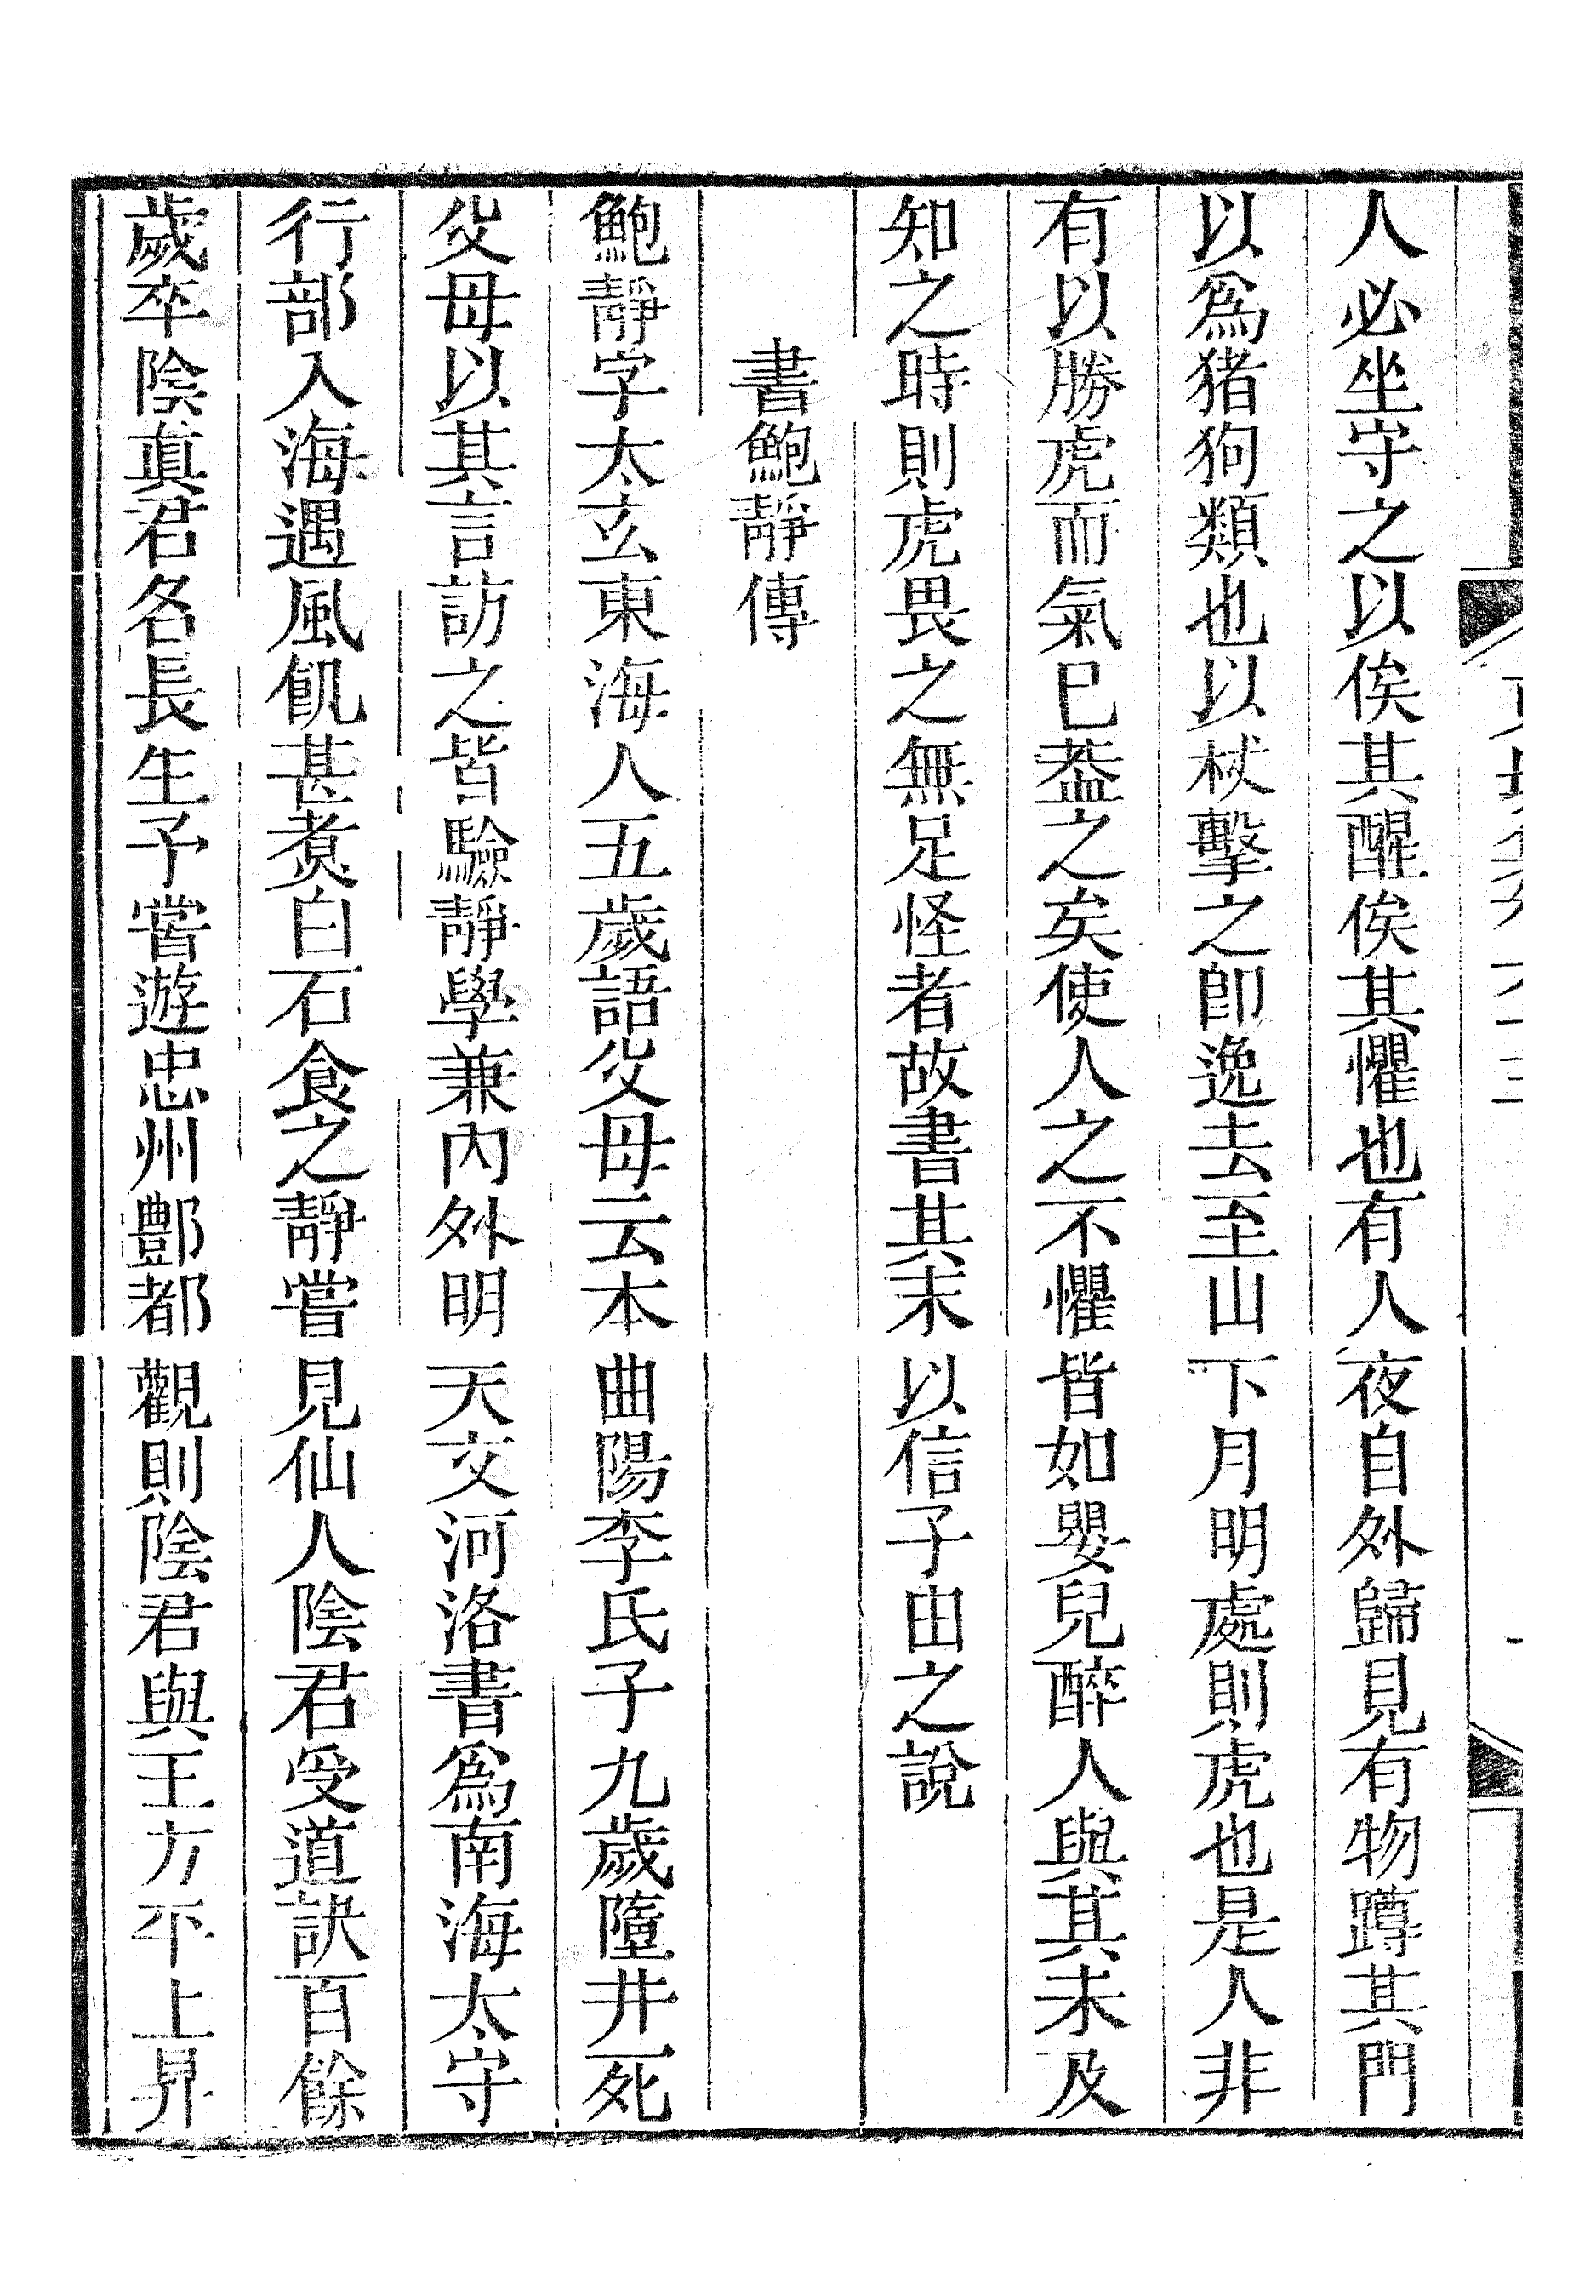 人必坐守之以俟其醒俟其懼也有人夜自外歸見有物蹲其門
以爲猪狗類也以杖擊之卽逸去至山下月明處則虎也是人非
有以勝虎而氣已葢之矣使人之不懼皆如嬰兒醉人與其未及
知之時則虎畏之無足怪者故書其末以信子由之說
書鮑靜傳
鮑靜字太玄東海人五歲語父母云本曲陽李氏子九歲墮井死
父母以其言訪之皆驗靜學兼內外明天文河洛書爲南海太守
行部入海遇風飢甚煑白石食之靜嘗見仙人陰君受道訣百餘
歲卒陰眞君名長生予嘗遊忠州酆都觀則陰君與王方平上昇